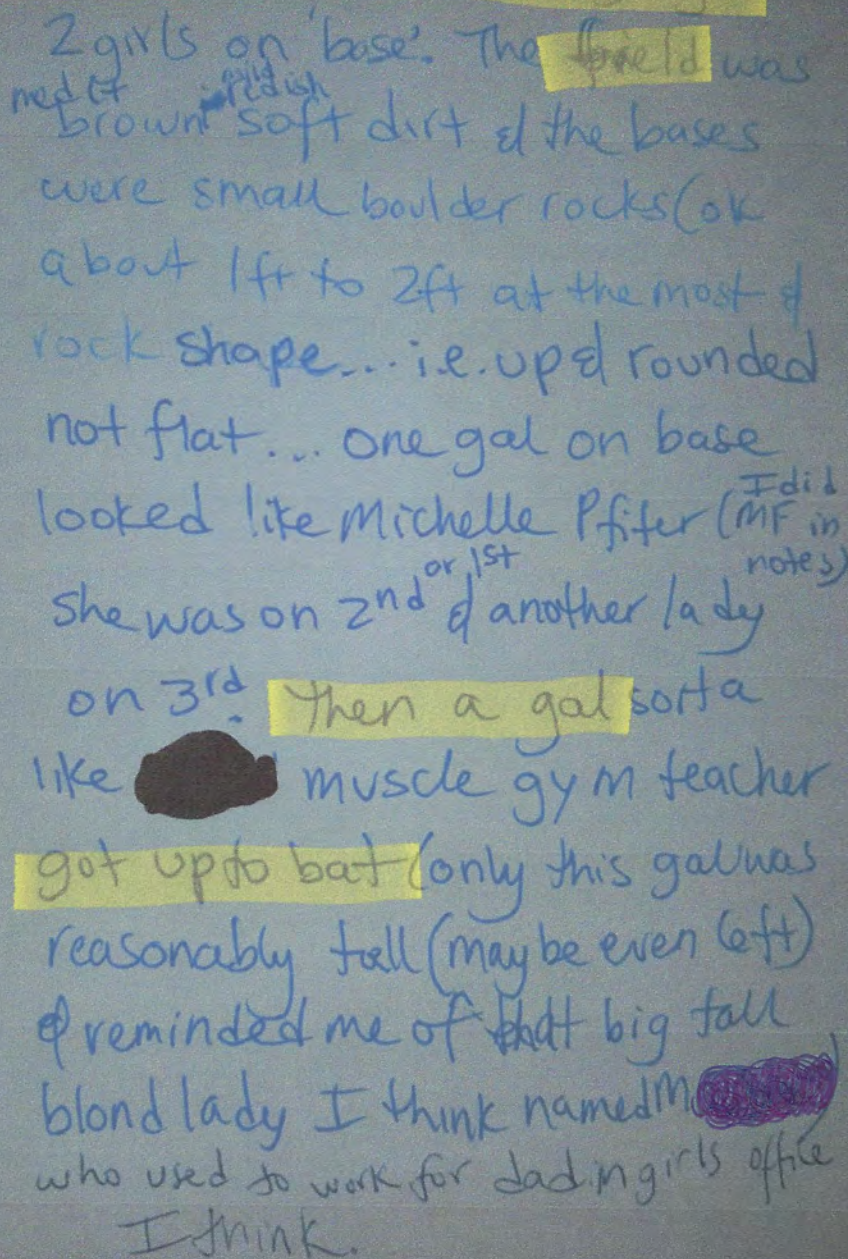 2 girls on 'base'. The field was
med lt redish
brown soft dirt & the bases
were small boulder rocks (ok
about 1ft to 2ft at the most &
rock shape... i.e. up & rounded
not flat... one gal on base
looked like Michelle Pfifer (I did
MF in
notes)
she was on 2nd or 1st & another lady
on 3rd. then a gal sorta
like muscle gym teacher
got up to bat (only this gal was
reasonably tall (maybe even 6ft)
& reminded me of that big tall
blond lady I think named M
who used to work for dad in girls office
I think.